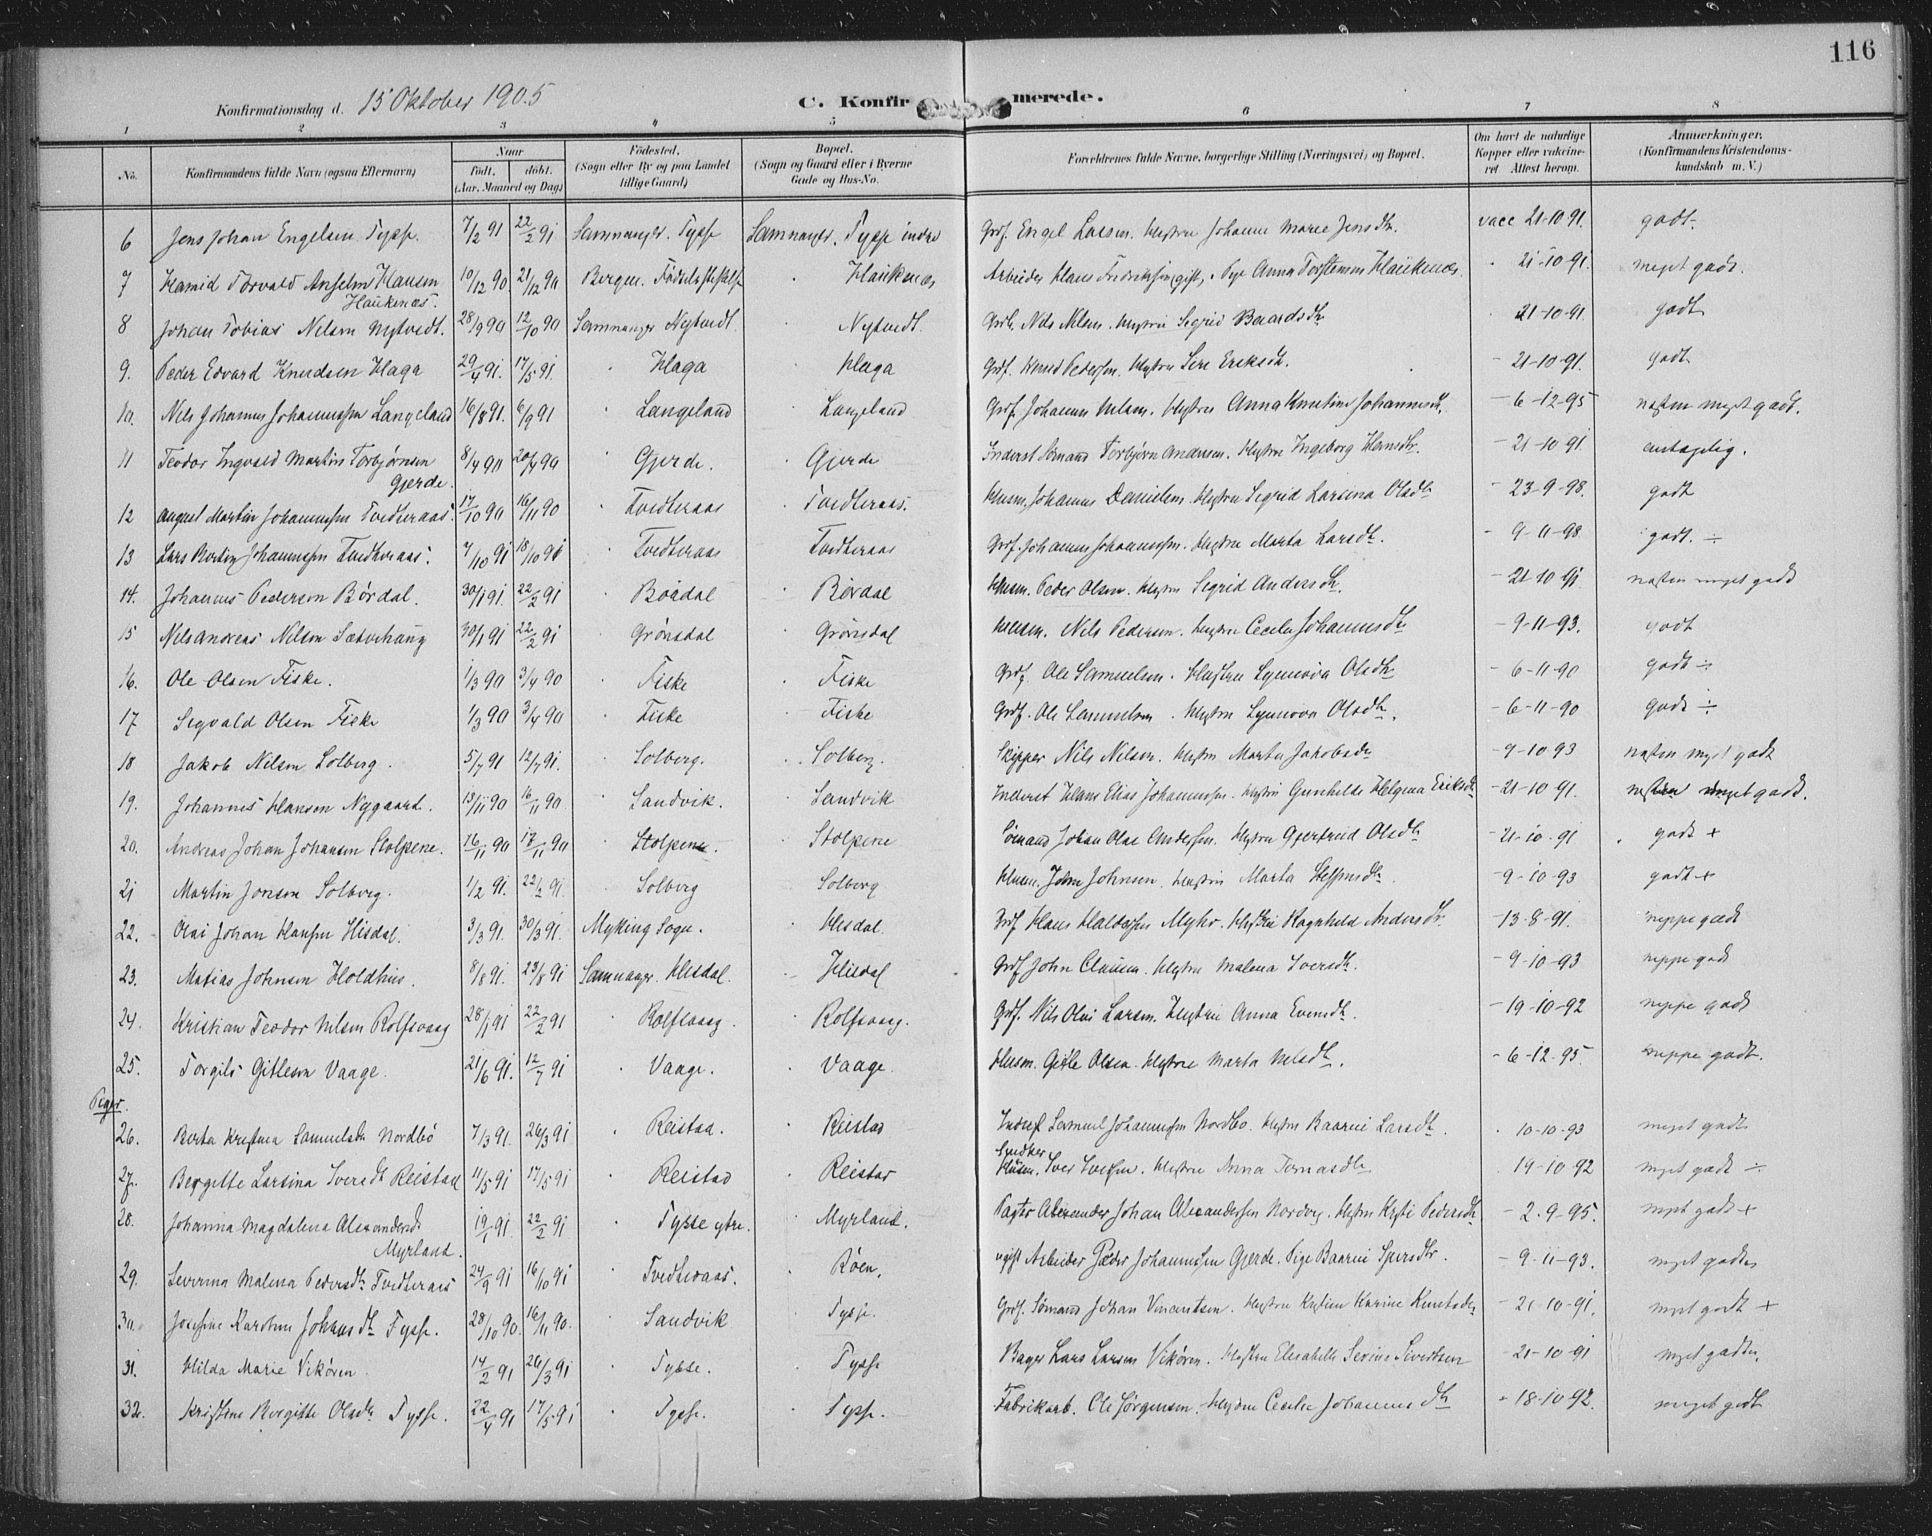 116
Konfirmationsdag d. 15 Oktober 1905 C. Konfirmerede.
1 2 3 4 5 6 7 8
No. Konfirmandens fulde Navn (ogsaa Efternavn) Naar født. døbt. (Aar, Maaned og Dag) Fødested. (Sogn eller By og paa Landet tillige Gaard) Bopæl. (Sogn og Gaard eller i Byerne Gade og Hus-No. Forældrenes fulde Navne, borgerlige Stilling (Næringsvei) og Bopæl. Om havt de naturlige Kopper eller vakcineret Attest herom. Anmærkninger. (Konfirmandens Kristendomskundskab m. V.)
6 Jens Johan Engelsen Tysse. 7/2 91 22/2 91 Samnanger. Tysse Samnanger. Tysse indre Grdf. Engel Larsen. Hustru Johanne Marie Jensdtr. vacc 21-10-91. godt.
7 Hamid Torvald Anselm Hansen Haukenæs. 10/12 90. 21/12 90 Bergen. Fødselsstiftelse Haukenæs Arbeider Hans Fredriksen gift, Pige Anna Torstensen Haukenæs. " 21-10-91. meget godt.
8 Johan Tobias Nilsen Nytvedt. 28/9 90 12/10 90 Samnanger Nytvedt. " Nytvedt. Grdb. Nils Nilsen. Hustru Sigrid Baardsdtr 21-10-91. godt
9. Peder Edvard Knudsen Haga 29/4 91. 17/5 91. " Haga " Haga Grdf. Knud Pedersen. Hustru Siri Eriksdtr. - 21-10-91. godt.
10. Nils Johannes Johannessen Langeland 16/8 91. 6/9 91 " Langeland Langeland Grdf. Johannes Nilsen. Hustru Anna Knutine Johannesdtr. - 6-12-95 næsten meget godt.
11 Teodor Ingvald Martin Torbjørnsen Gjerde. 8/4 90 20/4 90 " Gjerde. Gjerde Inderst Sømand Torbjørn Andersen. Hustru Ingeborg Hansdtr. - 21-10-91. antagelig.
12 August Martin Johannessen Tvedteraas. 17/10 90 16/11 90 " Tvedteraas " Tvedteraas. Husm. Johannes Danielsen. Hustru Sigrid Larsina Olsdtr - 23-9-98. godt
13 Lars Bertin Johannessen Tvedteraas. 7/10 91 18/10 91 " Tvedteraas Tvedteraas Grdf. Johannes Johannessen. Hustru Marta Larsdtr. - 9-11-98. godt. ÷
14. Johannes Pedersen Børdal. 30/1 91. 22/2 91 " Børdal " Børdal Husm. Peder Olsen. Hustru Sigrid Andersdtr. - 21-10-91 næsten meget godt
15 Nils Andreas Nilsen Sæterhaug 30/1 91 22/2 91 " Grønsdal " Grønsdal Husm. Nils Pedersen. Hustru Cecilia Johannesdtr - 9-11-93. godt
16. Ole Olsen Fiske. 1/3 90 3/4 90 " Fiske " Fiske Grdf. Ole Samuelsen. Hustru Synnøva Olsdtr - 6-11-90 godt ÷
17 Sigvald Olsen Fiske 1/3 90 3/4 90 " Fiske Fiske Grdf. Ole Samuelsen. Hustru Synnøva Olsdtr. - 6-11-90 godt ÷
18 Jakob Nilsen Solberg. 5/7 91 12/7 91. " Solberg. Solberg. Skipper Nils Nilsen. Hustru Marta Jakobsdtr - 9-10-93 næsten meget godt
19. Johannes Hansen Nygaard. 13/11 90 16/11 90. " Sandvik. " Sandvik Inderst Hans Elias Johannessen. Hustru Gunhilda Helgena Eriksdtr - 21-10-91. næsten meget godt.
20. Andreas Johan Johansen Stolpene. 16/11 90 17/11 90 " Stolpene. Stolpene Sømand Johan Olai Andersen. Hustru Gjertrud Olsdtr - 21-10-91 godt +
21 Martin Jonsen Solberg. 1/2 91. 22/2 91. " Solberg Solberg Husm. John Johnsen. Hustru Marta Steffensdtr. - 9-10-93 godt +
22. Olai Johan Hansen Hisdal. 3/3 91. 30/3 91. Myking Sogn. " Hisdal. Grdf. Hans Haldorsen Myhr. Hustru Ragnhild Andersdtr. - 13-8-91. neppe godt
23. Matias Johnsen Holdhus. 8/8 91. 23/8 91 Samnanger. Hisdal. Hisdal Grdf. John Clausen. Hustru Malena Iversdtr. - 9-10-93 neppe godt
24. Kristian Teodor Nilsen Rolfsvaag 28/1 91 22/2 91 " Rolfsvaag. " Rolfsvaag. Grdf. Nils Olai Larsen. Hustru Anna Evensdtr. - 19-10-92 neppe godt
25. Torgils Gitlesen Vaage. 21/6 91. 12/7 91 " Vaage. " Vaage. Husm. Gitle Olsen. Hustru Marta Nilsdtr. - 6-12-95 neppe godt.
Piger.
26. Berta Kristina Samuelsdtr Nordbø 7/3 91. 26/3 91 " Reistad. " Reistad Inderst Samuel Johannessen Nordbo. Hustru Baarni Larsdtr. 10-10-93 meget godt
27. Bergitte Larsina Iversdtr Reistad 11/5 91 17/5 91 " Reistad " Reistad Snedker Husm. Iver Iversen. Hustru Anna Tomasdtr 19-10-92 meget godt ÷
28. Johanna Magdalena Alexandersdtr Myrland. 19/1 91 22/2 91 " Tysse ytre. " Myrland. Pagter Alexander Johan Alexandersen Nordvig. Hustru Kysti Pedersdtr - 2-9-95. meget godt +
29. Severina Malena Pedersdtr Tvedteraas 24/9 91 16/10 91 " Tvedteraas. " Røen. ugift Arbeider Peder Johannessen Gjerde. Pige Baarni Sjursdtr. - 9-11-93. meget godt
30. Josefine Karoline Johansdtr Tysse. 28/10 90. 16/11 90. " Sandvik " Tysse. Grdf. Sømand Johan Vincentsen. Hustru Kristine Karine Knutsdtr - 21-10-91. meget godt +
31. Hilda Marie Vikøren. 14/2 91 26/3 91 " Tysse. " Tysse Bager Lars Larsen Vikøren. Hustru Elisabeth Serine Sivertsen - 21-10-91 meget godt.
32. Kristine Bergitte Olsdtr Tysse. 22/4 91 17/5 91 " Tysse. " Tysse. Fabrikarb. Ole Jørgensen. Hustru Cecilie Johannesdtr " 18-10-92. meget godt